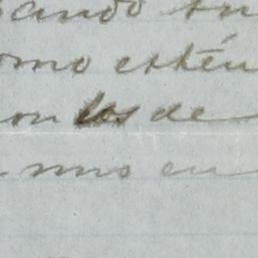 ando su
omo estén
on los de
uno en